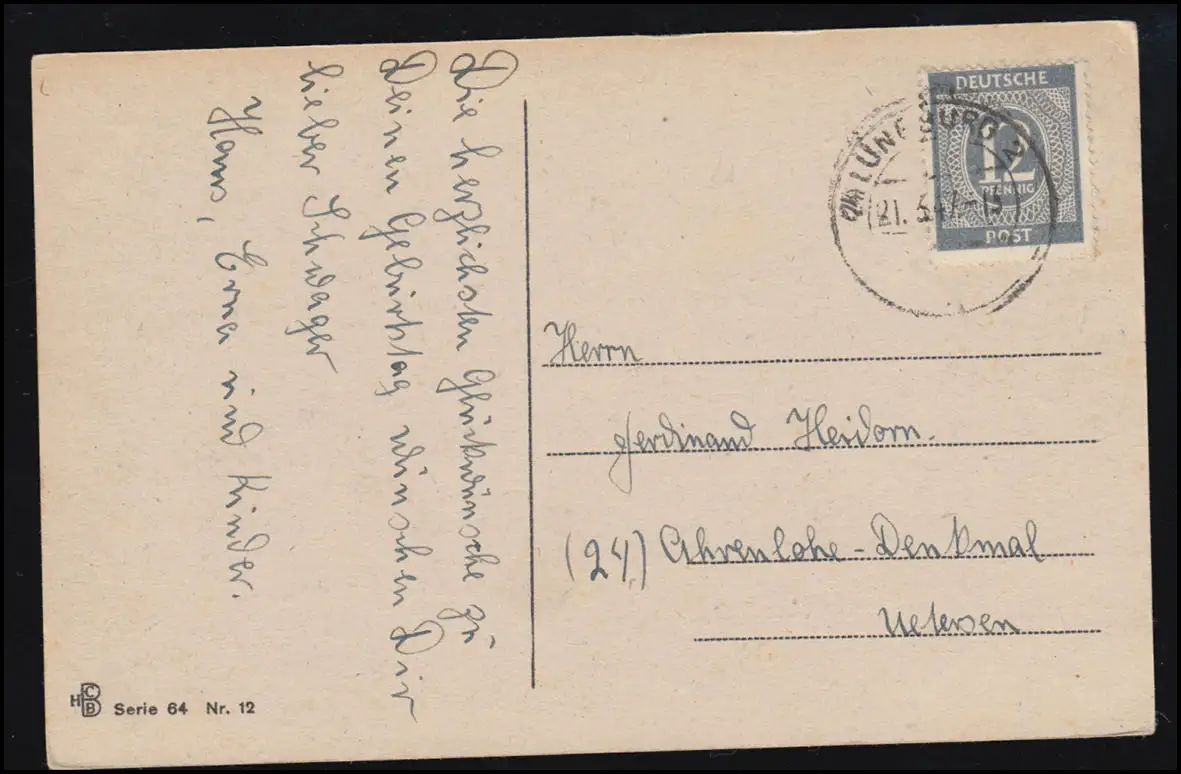 Die herzlichsten Glückwünsche zu
Deinem Geburtstag wünschen Dir
lieber Schwager
Hans, Erna und Kinder.
DEUTSCHE
12
PFENNIG
POST
LÜNEBURG 2
21. 5. 47. - 15
Herrn
Ferdinand Heidorn.
(24) Ahrenlohe - Denkmal
Uetersen
HCB Serie 64 Nr. 12